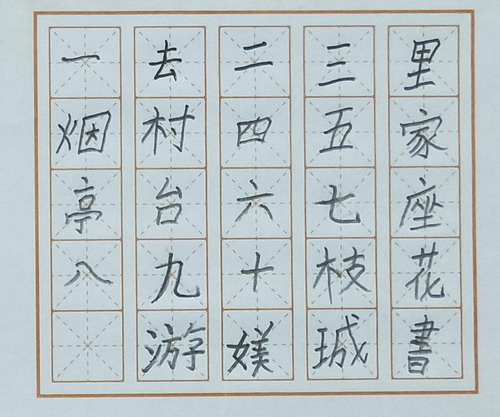 一去二三里
烟村四五家
亭台六七座
八九十枝花
游媄珹書